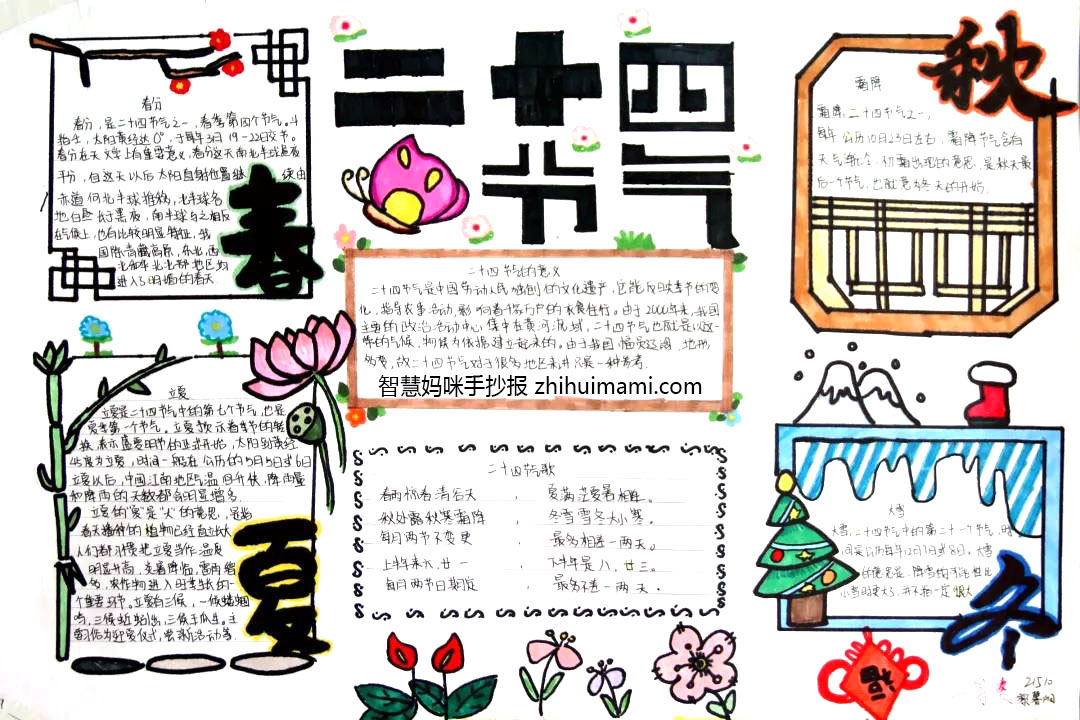 二十四
节气
春分
春分，是二十四节气之一，春季第四个节气。斗
指壬，太阳黄经达0°，于每年3月19-22日交节。
春分在天文学上有重要意义，春分这天南北半球昼夜
平分，自这天以后太阳直射位置继续由
赤道向北半球推移，北半球各
地白昼长于黑夜，南半球与之相反
在气候上，也有比较明显特征，我
国除青藏高原、东北、西
北和华北北部地区均
进入了明媚的春天
春
霜降
霜降，二十四节气之一，
每年公历10月23日左右，霜降节气含有
天气渐冷、初霜出现的意思，是秋天最
后一个节气，也意味冬天的开始
秋
二十四节气的意义
二十四节气是中国劳动人民独创的文化遗产，它能反映季节的变
化，指导农事活动，影响着千家万户的衣食住行。由于2000年来，我国
主要的政治活动中心集中在黄河流域，二十四节气也就是以这一
带的气候、物候为依据建立起来的，由于我国幅员辽阔、地形
多变，故二十四节气对于很多地区来讲只是一种参考
智慧妈咪手抄报 zhihuimami.com
立夏
立夏是二十四节气中的第七个节气，也是
夏季第一个节气。立夏预示着季节的转
换，表示盛夏时节的正式开始，太阳到黄经
45度为立夏，时间一般在公历的5月5日或6日
立夏以后，中国江南地区气温回升快，降雨量
和降雨的天数都会明显增多
立夏的"夏"是"大"的意思，是指
春天播种的植物已经直立长大
人们都习惯把立夏当作温度
明显升高，炎暑降临，雷雨增
多，农作物进入旺季生长的一
个重要环节，立夏有三候，一候蝼蝈
鸣，三候蚯蚓出，三候王瓜生。主
夏
二十四节气歌
春雨惊春清谷天，夏满芒夏暑相连。
秋处露秋寒霜降，冬雪雪冬大小寒。
每月两节不变更，最多相差一两天。
上半年来六、廿一，下半年是八、廿三。
每月两节日期定，最多不差一两天。
大雪
大雪，二十四节气中的第二十一个节气，时
间是公历每年12月7日或8日，大雪
的意思是，降雪的可能性比
小雪时更大了，并不指一定很大
冬
福